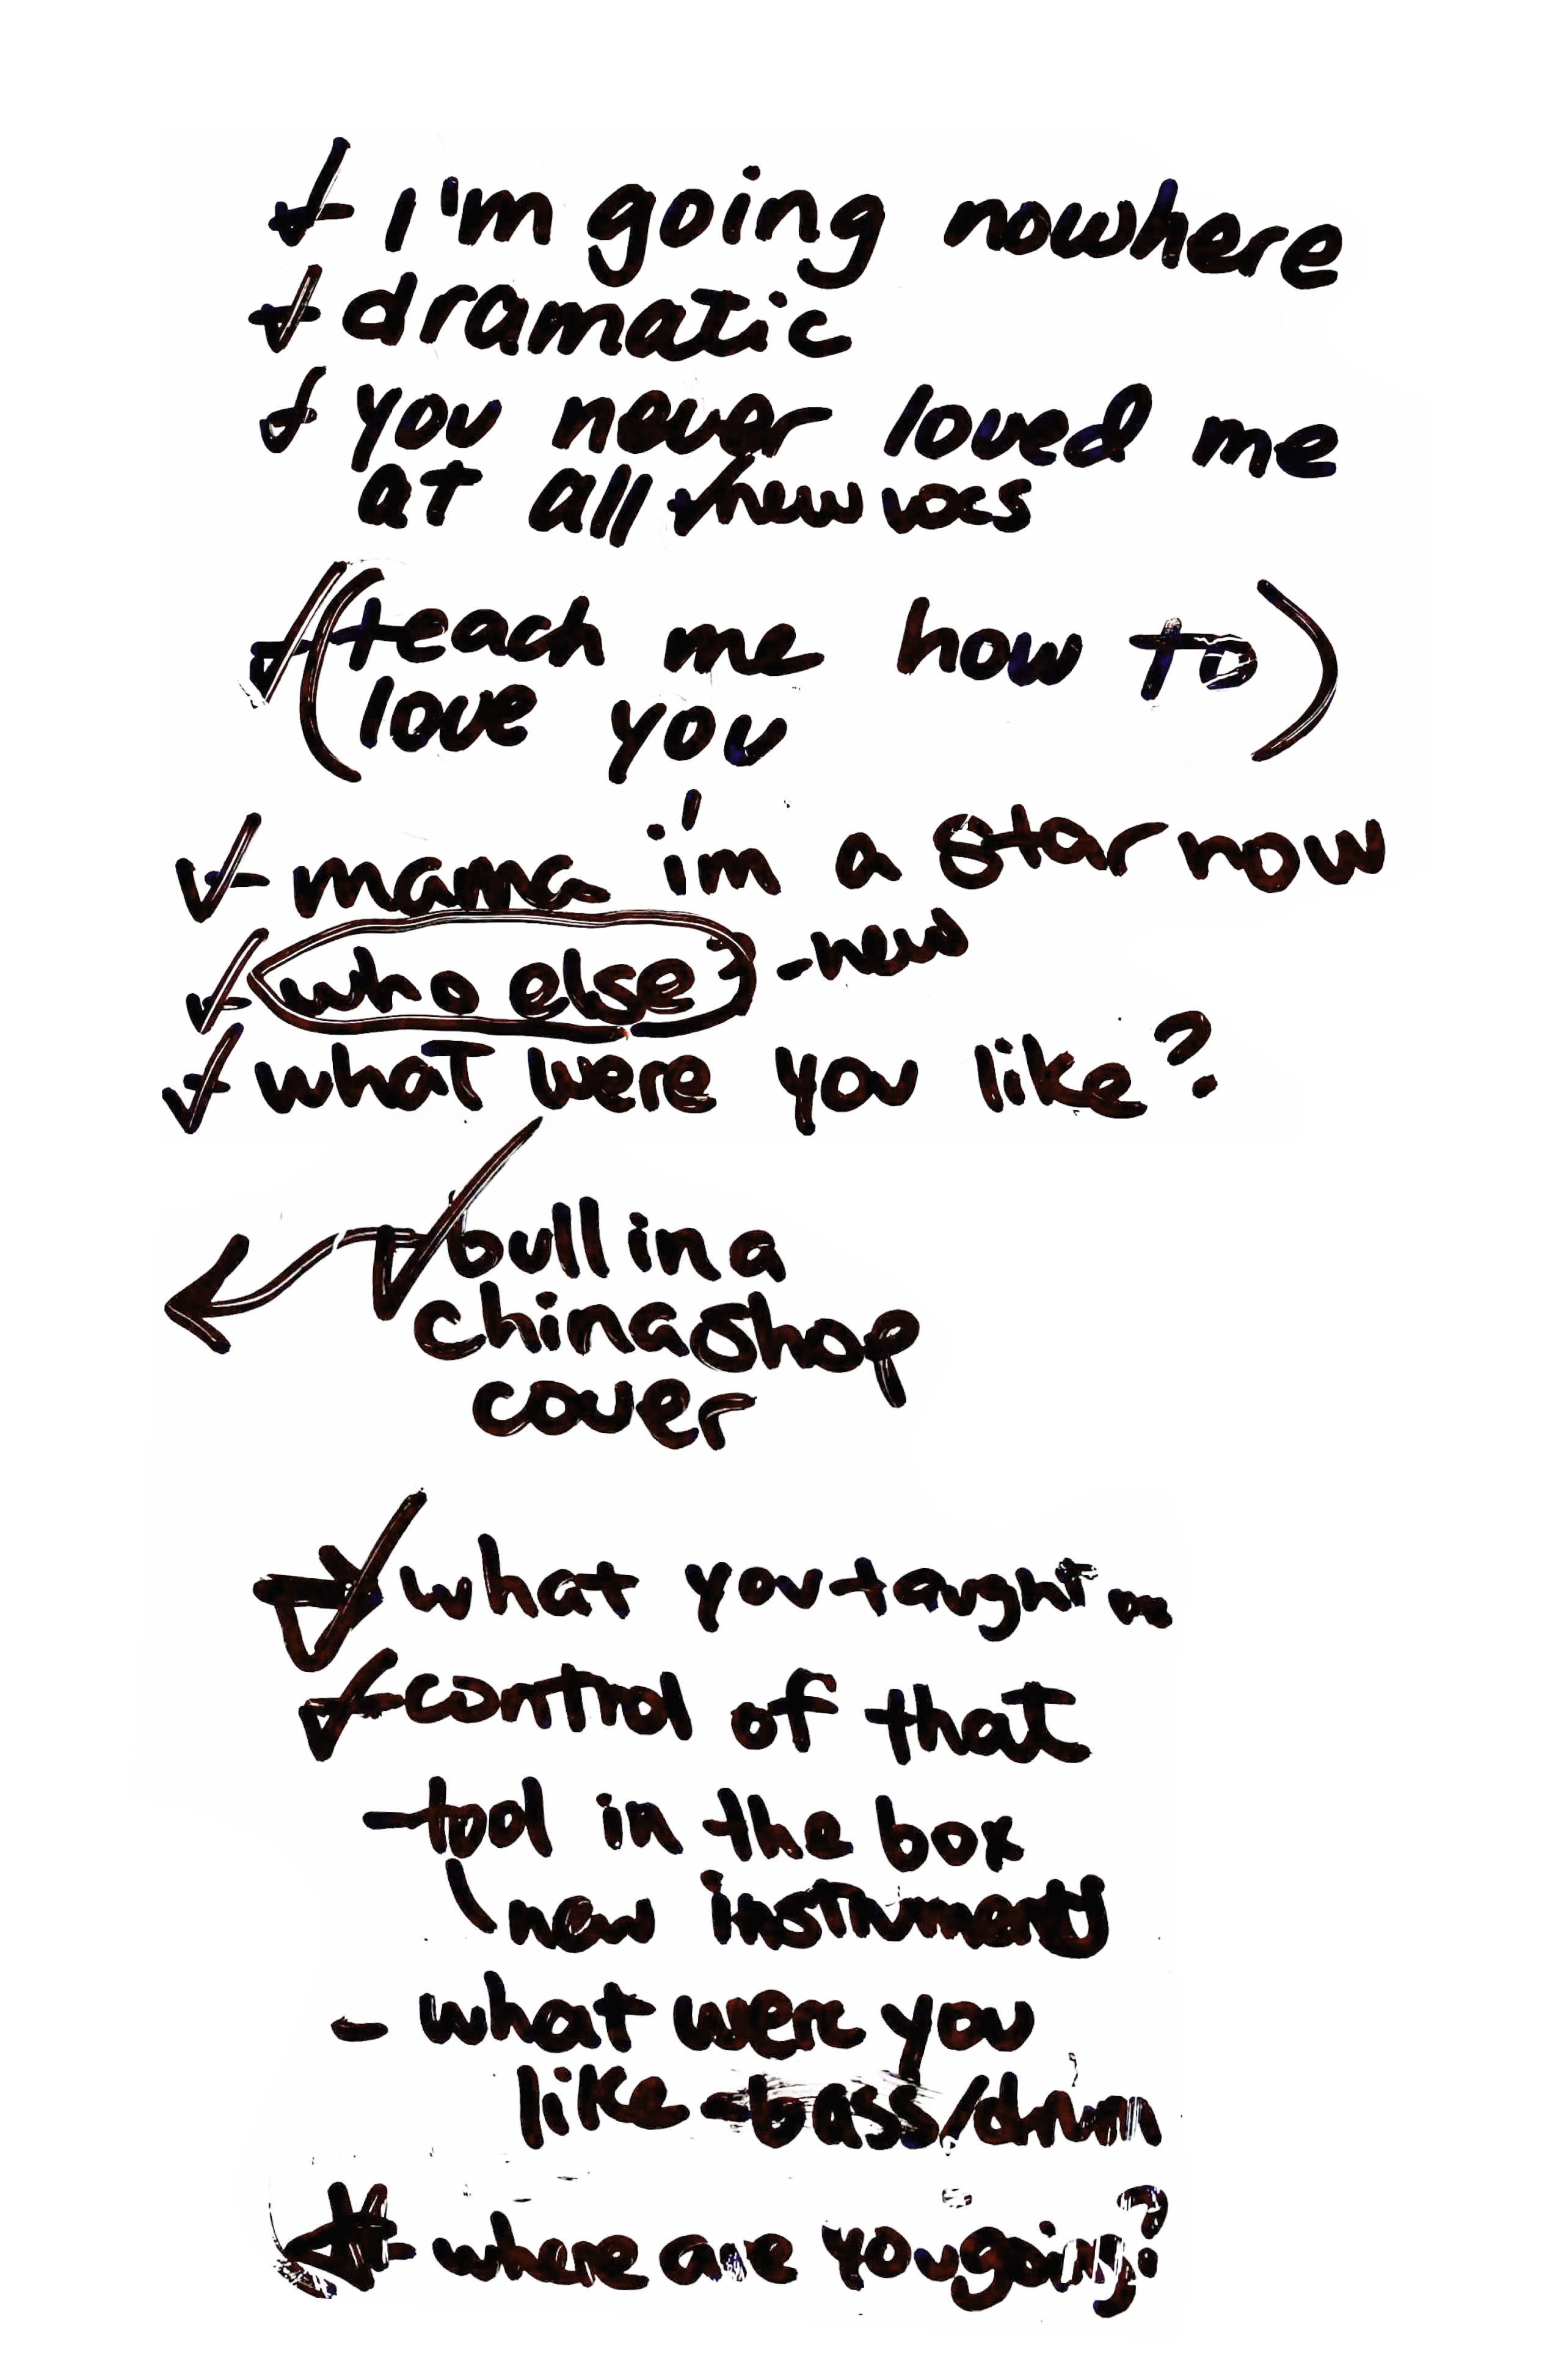 - I'm going nowhere
- dramatic
- you never loved me
at all - new vocs
- (teach me how to
love you)
- mama i'm a star now
- who else? - new
- what were you like?
bull in a
china shop
cover
- what you taught me
- control of that
- tool in the box
new instruments
- what were you
like - bass/drum
- where are you going?